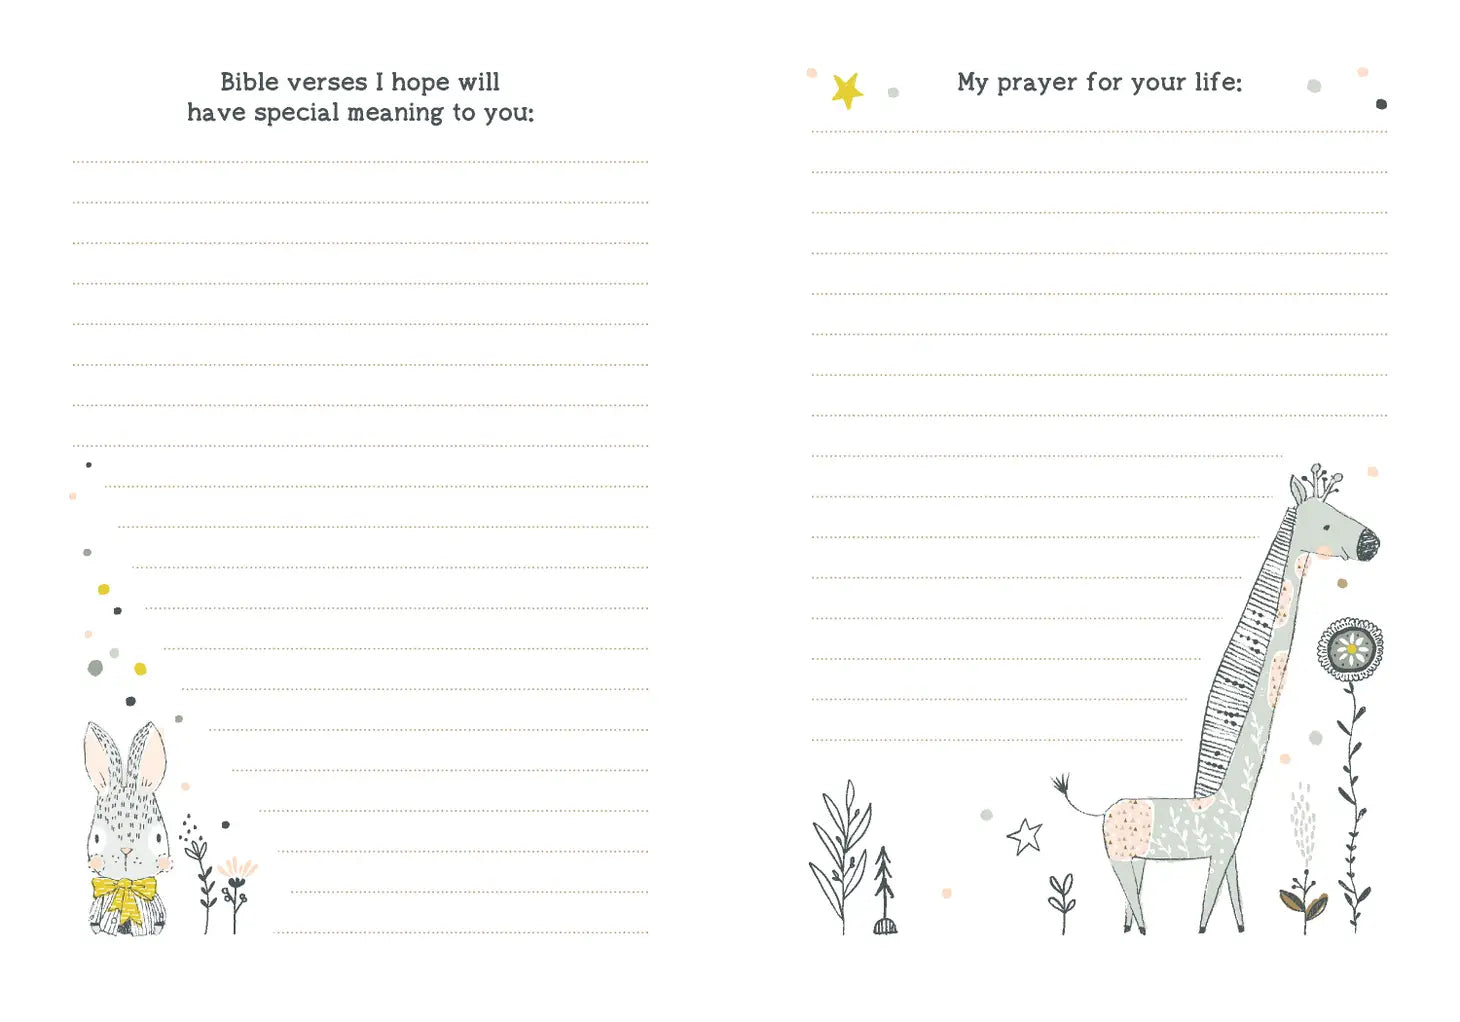 Bible verses I hope will
have special meaning to you:
My prayer for your life: